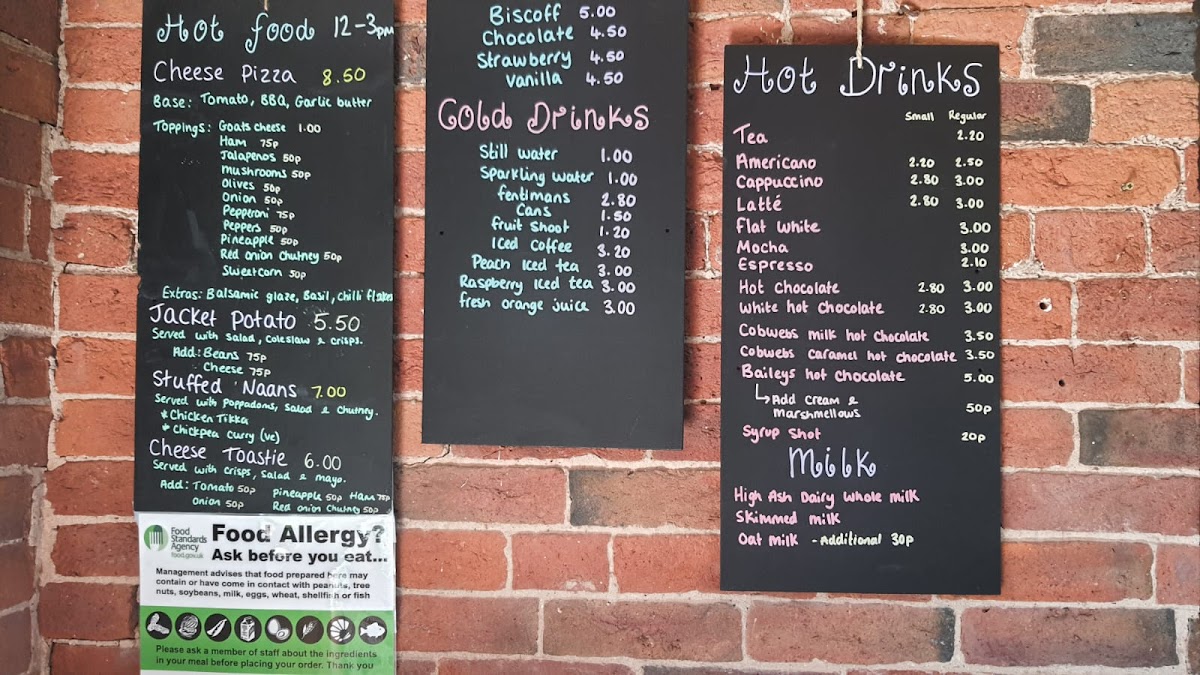 Hot food 12-3pm
Cheese Pizza 8.50
Base: Tomato, BBQ, Garlic butter
Toppings: Goats cheese 1.00
Ham 75p
Jalapenos 50p
Mushrooms 50p
Olives 50p
Onion 50p
Pepperoni 75p
Peppers 50p
Pineapple 50p
Red onion Chutney 50p
Sweetcorn 50p
Extras: Balsamic glaze, Basil, Chilli flakes
Jacket Potato 5.50
Served with Salad, Coleslaw & crisps.
Add: Beans 75p
Cheese 75p
Stuffed Naans 7.00
Served with Poppadoms, Salad & Chutney.
* Chicken Tikka
* Chickpea Curry (ve)
Cheese Toastie 6.00
Served with Crisps, Salad & mayo.
Add: Tomato 50p Pineapple 50p Ham 75p
Onion 50p Red onion Chutney 50p
Food Standards Agency
food.gov.uk
Food Allergy?
Ask before you eat...
Management advises that food prepared here may
contain or have come in contact with peanuts, tree
nuts, soybeans, milk, eggs, wheat, shellfish or fish
Please ask a member of staff about the ingredients
in your meal before placing your order. Thank you
Biscoff 5.00
Chocolate 4.50
Strawberry 4.50
Vanilla 4.50
Cold Drinks
Still water 1.00
Sparkling water 1.00
fentimans 2.80
Cans 1.50
fruit Shoot 1.20
Iced Coffee 3.20
Peach Iced tea 3.00
Raspberry Iced tea 3.00
fresh orange juice 3.00
Hot Drinks
Small Regular
Tea 2.20
Americano 2.20 2.50
Cappuccino 2.80 3.00
Latté 2.80 3.00
Flat White 3.00
Mocha 3.00
Espresso 2.10
Hot Chocolate 2.80 3.00
White hot Chocolate 2.80 3.00
Cobwebs milk hot chocolate 3.50
Cobwebs caramel hot chocolate 3.50
Baileys hot chocolate 5.00
Add Cream &
Marshmellows 50p
Syrup Shot 20p
Milk
High Ash Dairy Whole milk
Skimmed milk
Oat milk - Additional 30p